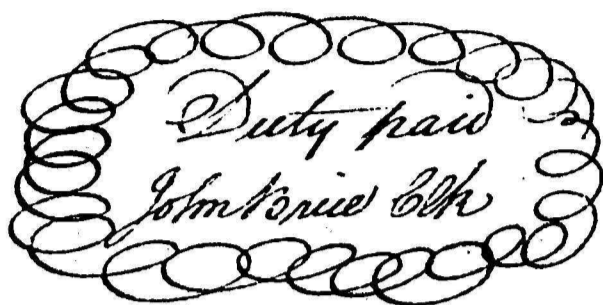 Duty paid
John Brice Clk